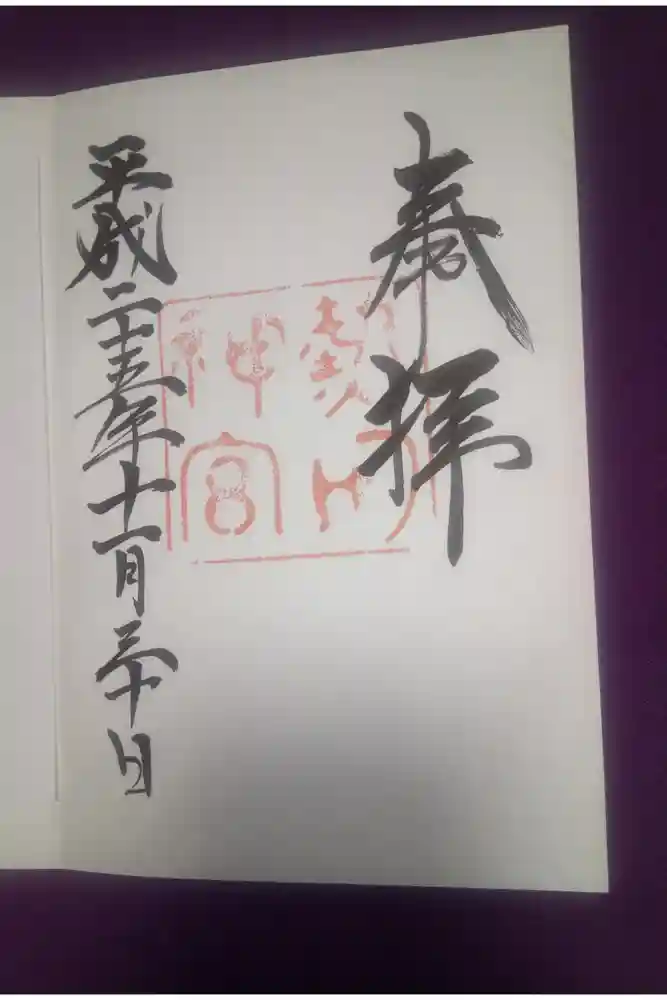 奉拝
熱田
神宮
平成二十五年十一月三十日